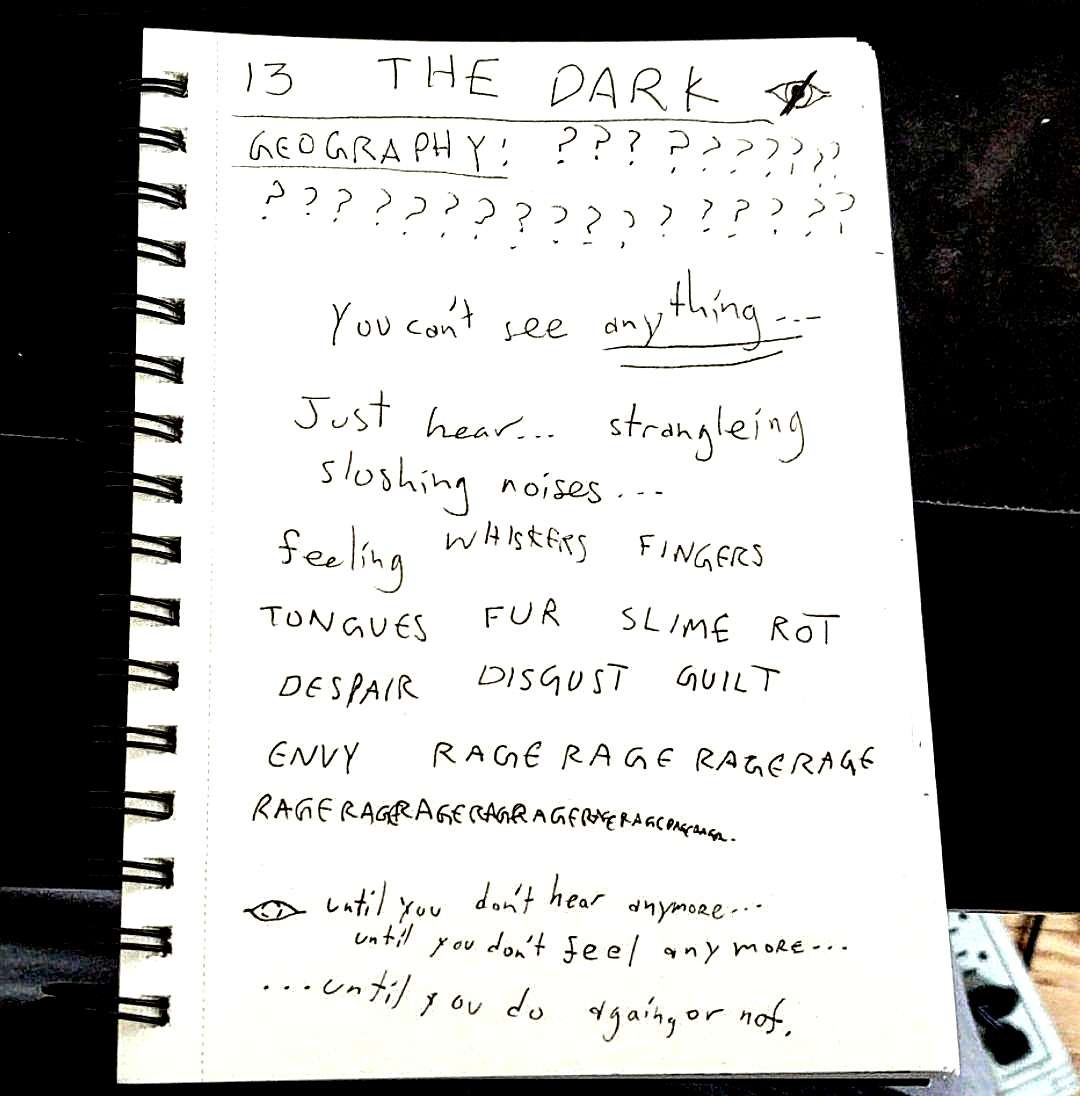 13 THE DARK
GEOGRAPHY: ??? ???????
??????????????????
You can't see anything...
Just hear... strangleing
sloshing noises...
feeling WHISKERS FINGERS
TONGUES FUR SLIME ROT
DESPAIR DISGUST GUILT
ENVY RAGE RAGE RAGERAGE
RAGERAGERAGERAGERAGERAGERAGERAGERAGE.
until you don't hear anymore...
until you don't feel anymore...
...until you do again, or not.